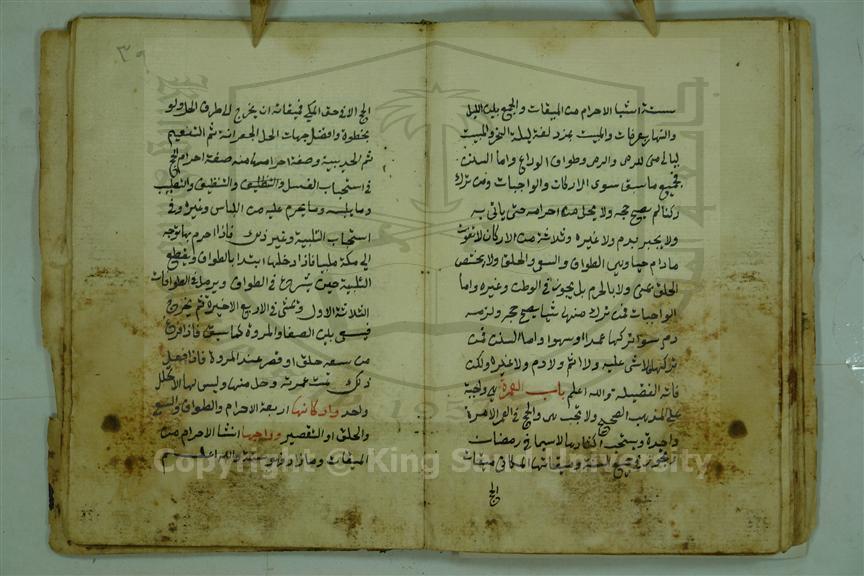 ستة اشيا الاحرام من الميقات والجمع بين الليل
والنهار بعرفات والمبيت بمزدلفة ليلة النحر والمبيت
ليالي منى للرمي والرمي وطواف الوداع واما السنن
فجميع ما سبق سوى الاركان والواجبات ومن ترك
ركنا لم يصح حجه ولا يحل من احرامه حتى ياتي به
ولا يجبر بدم ولا غيره وثلاثة من الاركان لا تفوت
ما دام حيا وهي الطواف والسعي والحلق ولا يختص
الحلق بمنى ولا بالحرم بل يجوز في الوطن وغيره واما
الواجبات فمن ترك منها شيا صح حجه ولزمه
دم سوا تركها عمدا او سهوا واما السنن فمن
تركها لا شي عليه ولا اثم ولا دم ولا غيره ولكن
فاته الفضيلة والله اعلم باب العمرة هي واجبة
على المذهب الصحيح ولا تجب هي والحج في العمر الا مرة
واحدة ويستحب اكثارها لا سيما في رمضان
وتجوز في جميع السنة وميقاتها المكاني ميقات
الحج
٣٩
الحج الا في حق المكي فميقاته ان يخرج لاطرف الحل ولو
بخطوة وافضل جهات الحل الجعرانة ثم التنعيم
ثم الحديبية وصفة احرامها منه صفة احرام الحج
في استحباب الغسل والتنظيف والتطيب
وما يلبسه وما يحرم عليه من اللباس وغيره وفي
استحباب التلبية وغير ذلك فاذا احرم بها توجه
الى مكة ملبيا فاذا دخلها ابتدا بالطواف ويقطع
التلبية حين يشرع في الطواف ويرمل في الطوافات
الثلاثة الاول ويمشي في الاربع الاخيرة ثم يخرج
فيسعى بين الصفا والمروة كما سبق فاذا فرغ
من سعيه حلق او قصر عند المروة فاذا فعل
ذلك تمت عمرته وحل منها وليس لها الا تحلل
واحد واركانها اربعة الاحرام والطواف والسعي
والحلق او التقصير وواجبها انشا الاحرام من
الميقات وما زاد فهو سنة والله اعلم
Copyright © King Saud University
1957